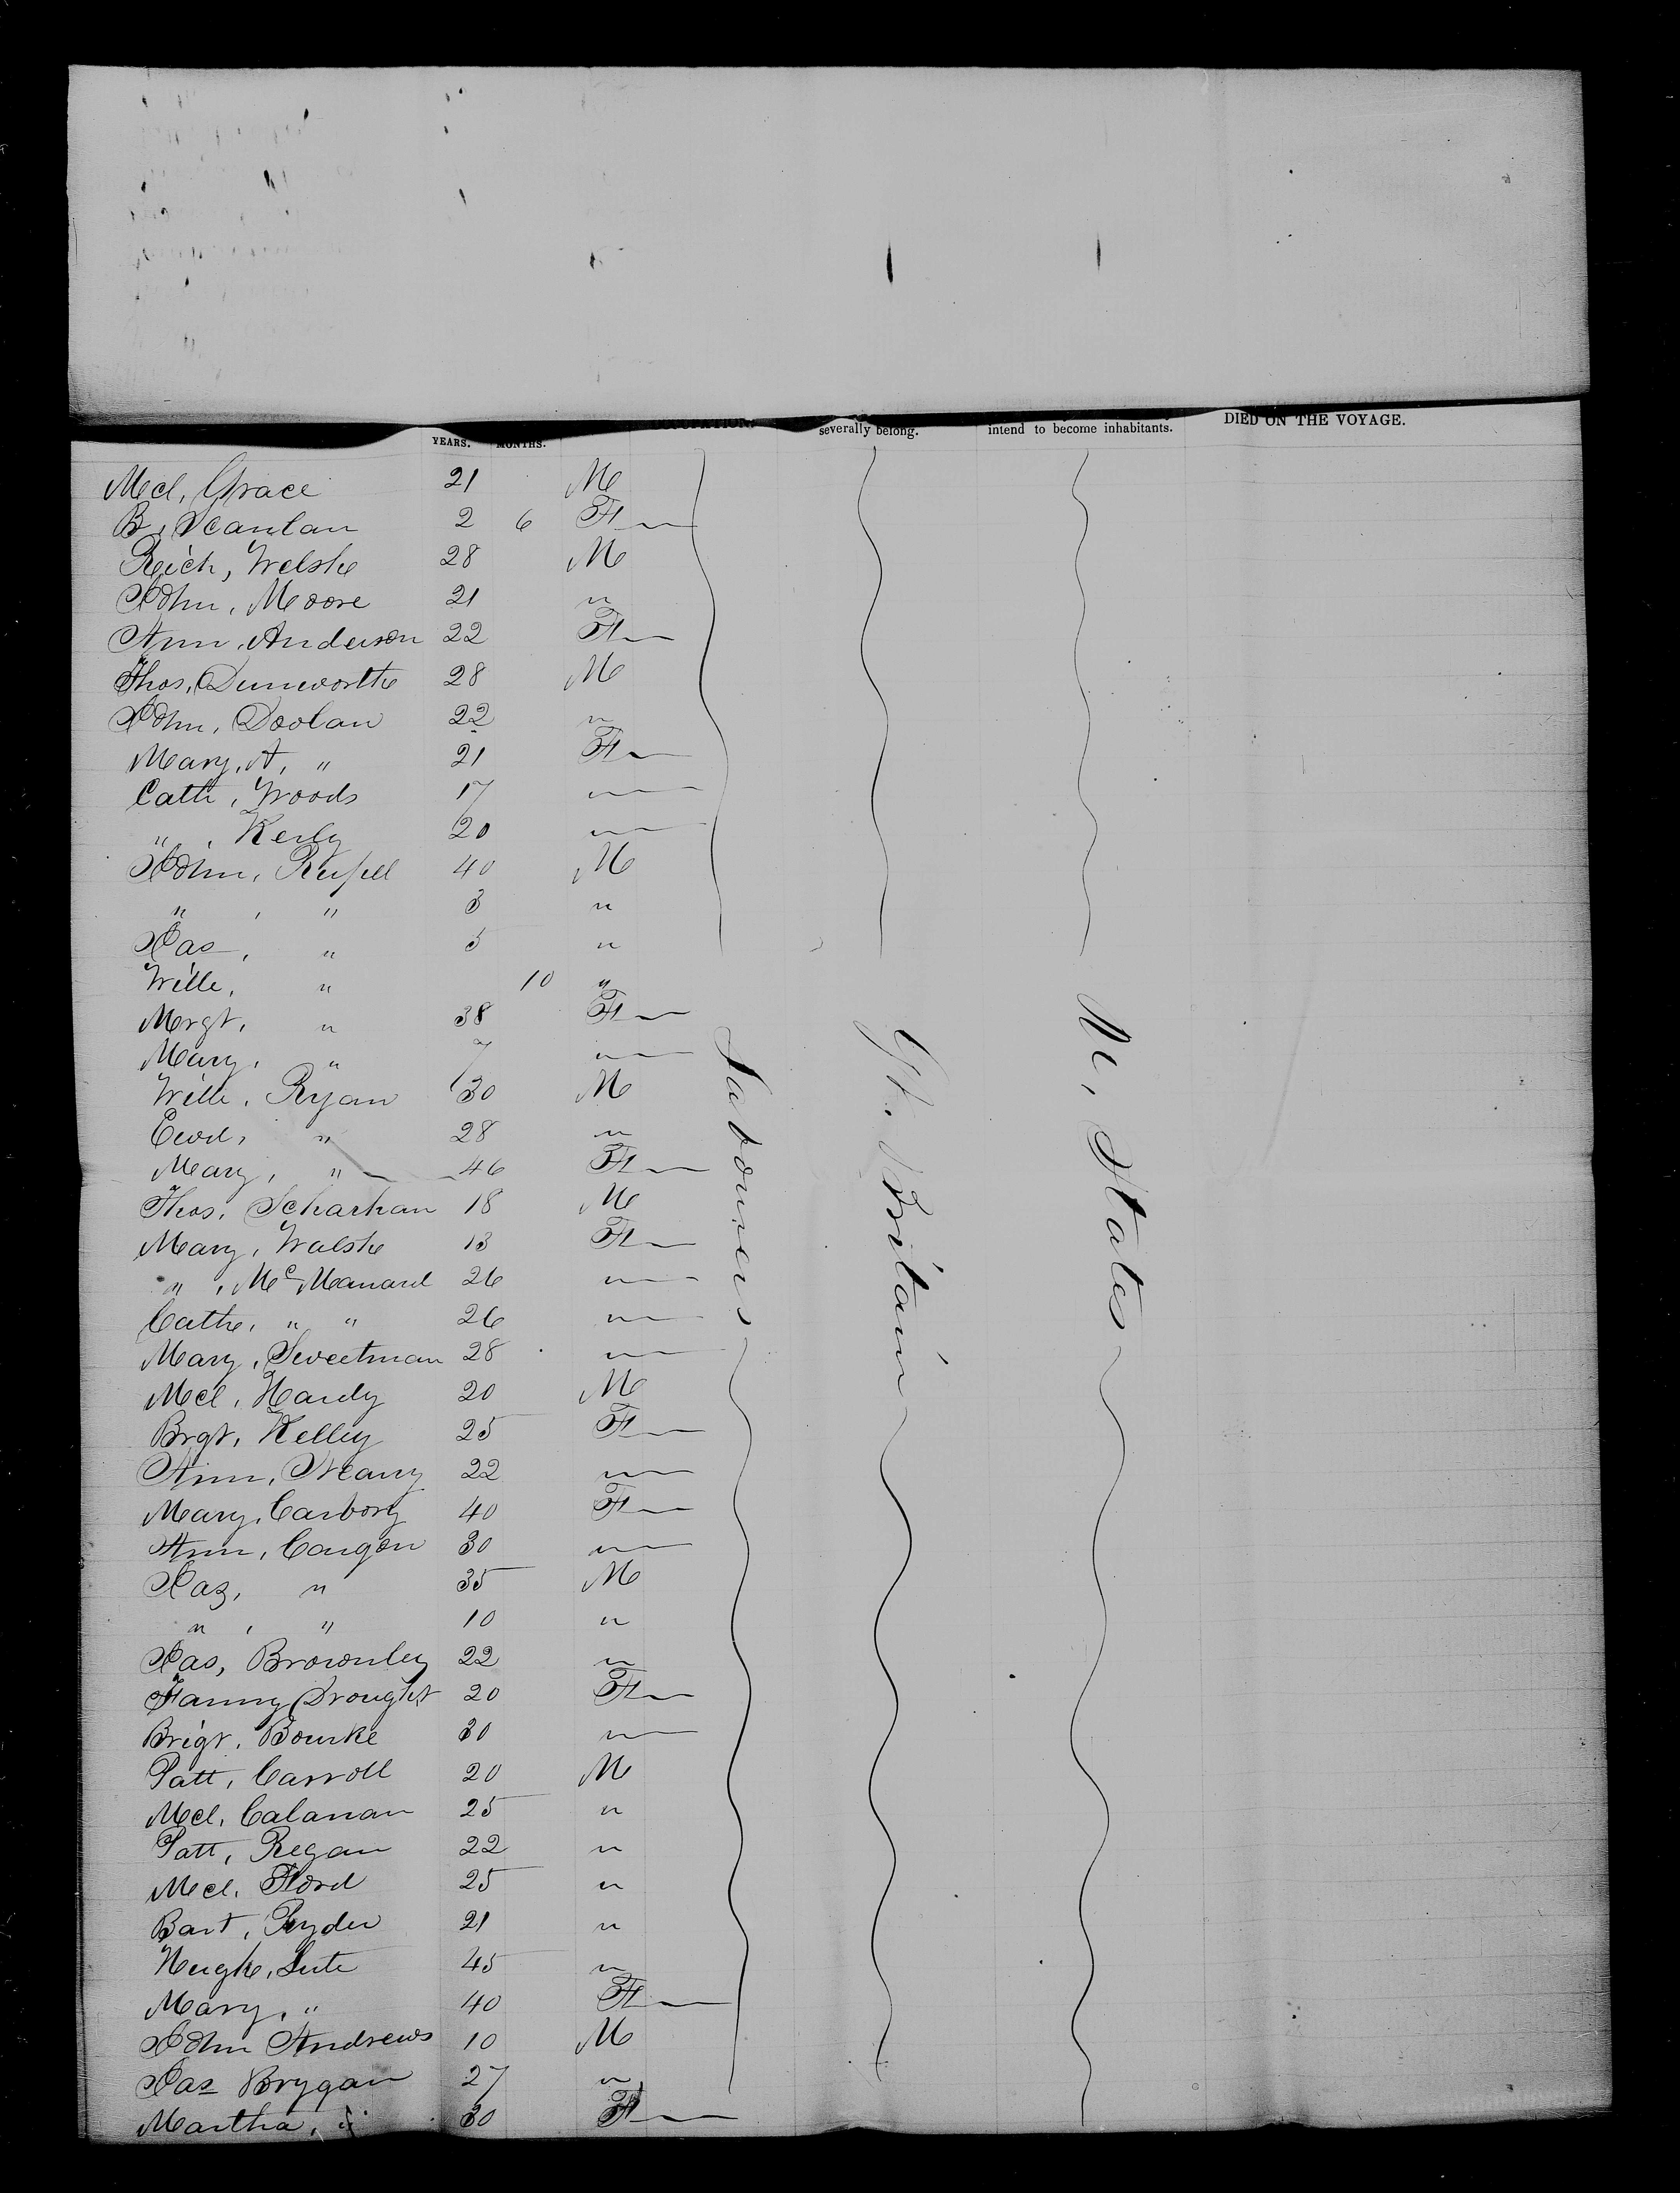 YEARS. MONTHS. OCCUPATION. severally belong. intend to become inhabitants. DIED ON THE VOYAGE.
Mcl, Grace 21 M
B, Scanlan 2 6 F
Rich, Welsh 28 M
John, Moore 21 "
Ann, Anderson 22 F
Thos, Dunworth 28 M
John, Doolan 22 "
Mary, A, " 21 F
Cath, Woods 17 "
" , Kerly 20 "
John, Russell 40 M
" , " 3 "
Jas, " 5 "
Will, " 10 "
Mrgt, " 38 F
Mary, " 7 "
Will, Ryan 30 M
Ewd, " 28 "
Mary, " 46 F
Thos, Scharhan 18 M
Mary, Walsh 13 F
" , McManard 26 "
Cath, " " 26 "
Mary, Sweetman 28 "
Mcl, Hardy 20 M
Brgt, Kelley 25 F
Ann, Neary 22 "
Mary, Carbory 40 F
Ann, Congon 30 "
Jas, " 35 M
" , " 10 "
Jas, Brownley 22 "
Fanny Drought 20 F
Brigt, Bourke 30 "
Patt, Carroll 20 M
Mcl, Calanan 25 "
Patt, Regan 22 "
Mcl, Ford 25 "
Bart, Ryder 21 "
Hugh, Lute 45 "
Mary, " 40 F
John Andrews 10 M
Jas Brygan 27 "
Martha, " 30 F
Labourers
Gt. Britain
U. States